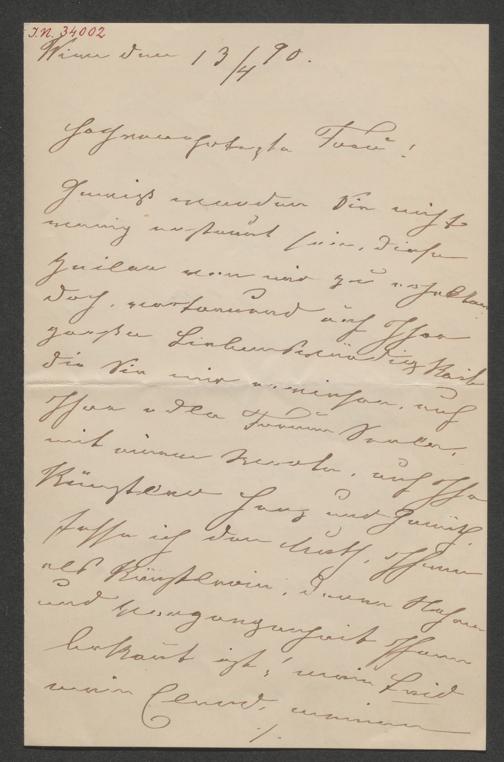 I.N. 34002
Wien den 13/4 90.
Hochverehrteste Frau!
Gewiss werden Sie nicht
wenig erstaunt sein, diese
Zeilen von mir zu erhalten
doch, vertrauend auf Ihre
große Liebenswürdigkeit
die Sie mir erwiesen, auf
Ihre edle Frauen Seele,
mit einem Worte, auf Ihr
Künstler Herz und Gemüth,
fasse ich den Muth, Ihnen
als Künstlerin, deren Nahme
und Vergangenheit Ihnen
bekannt ist, mein Leid
mein Elend, meinen
./.